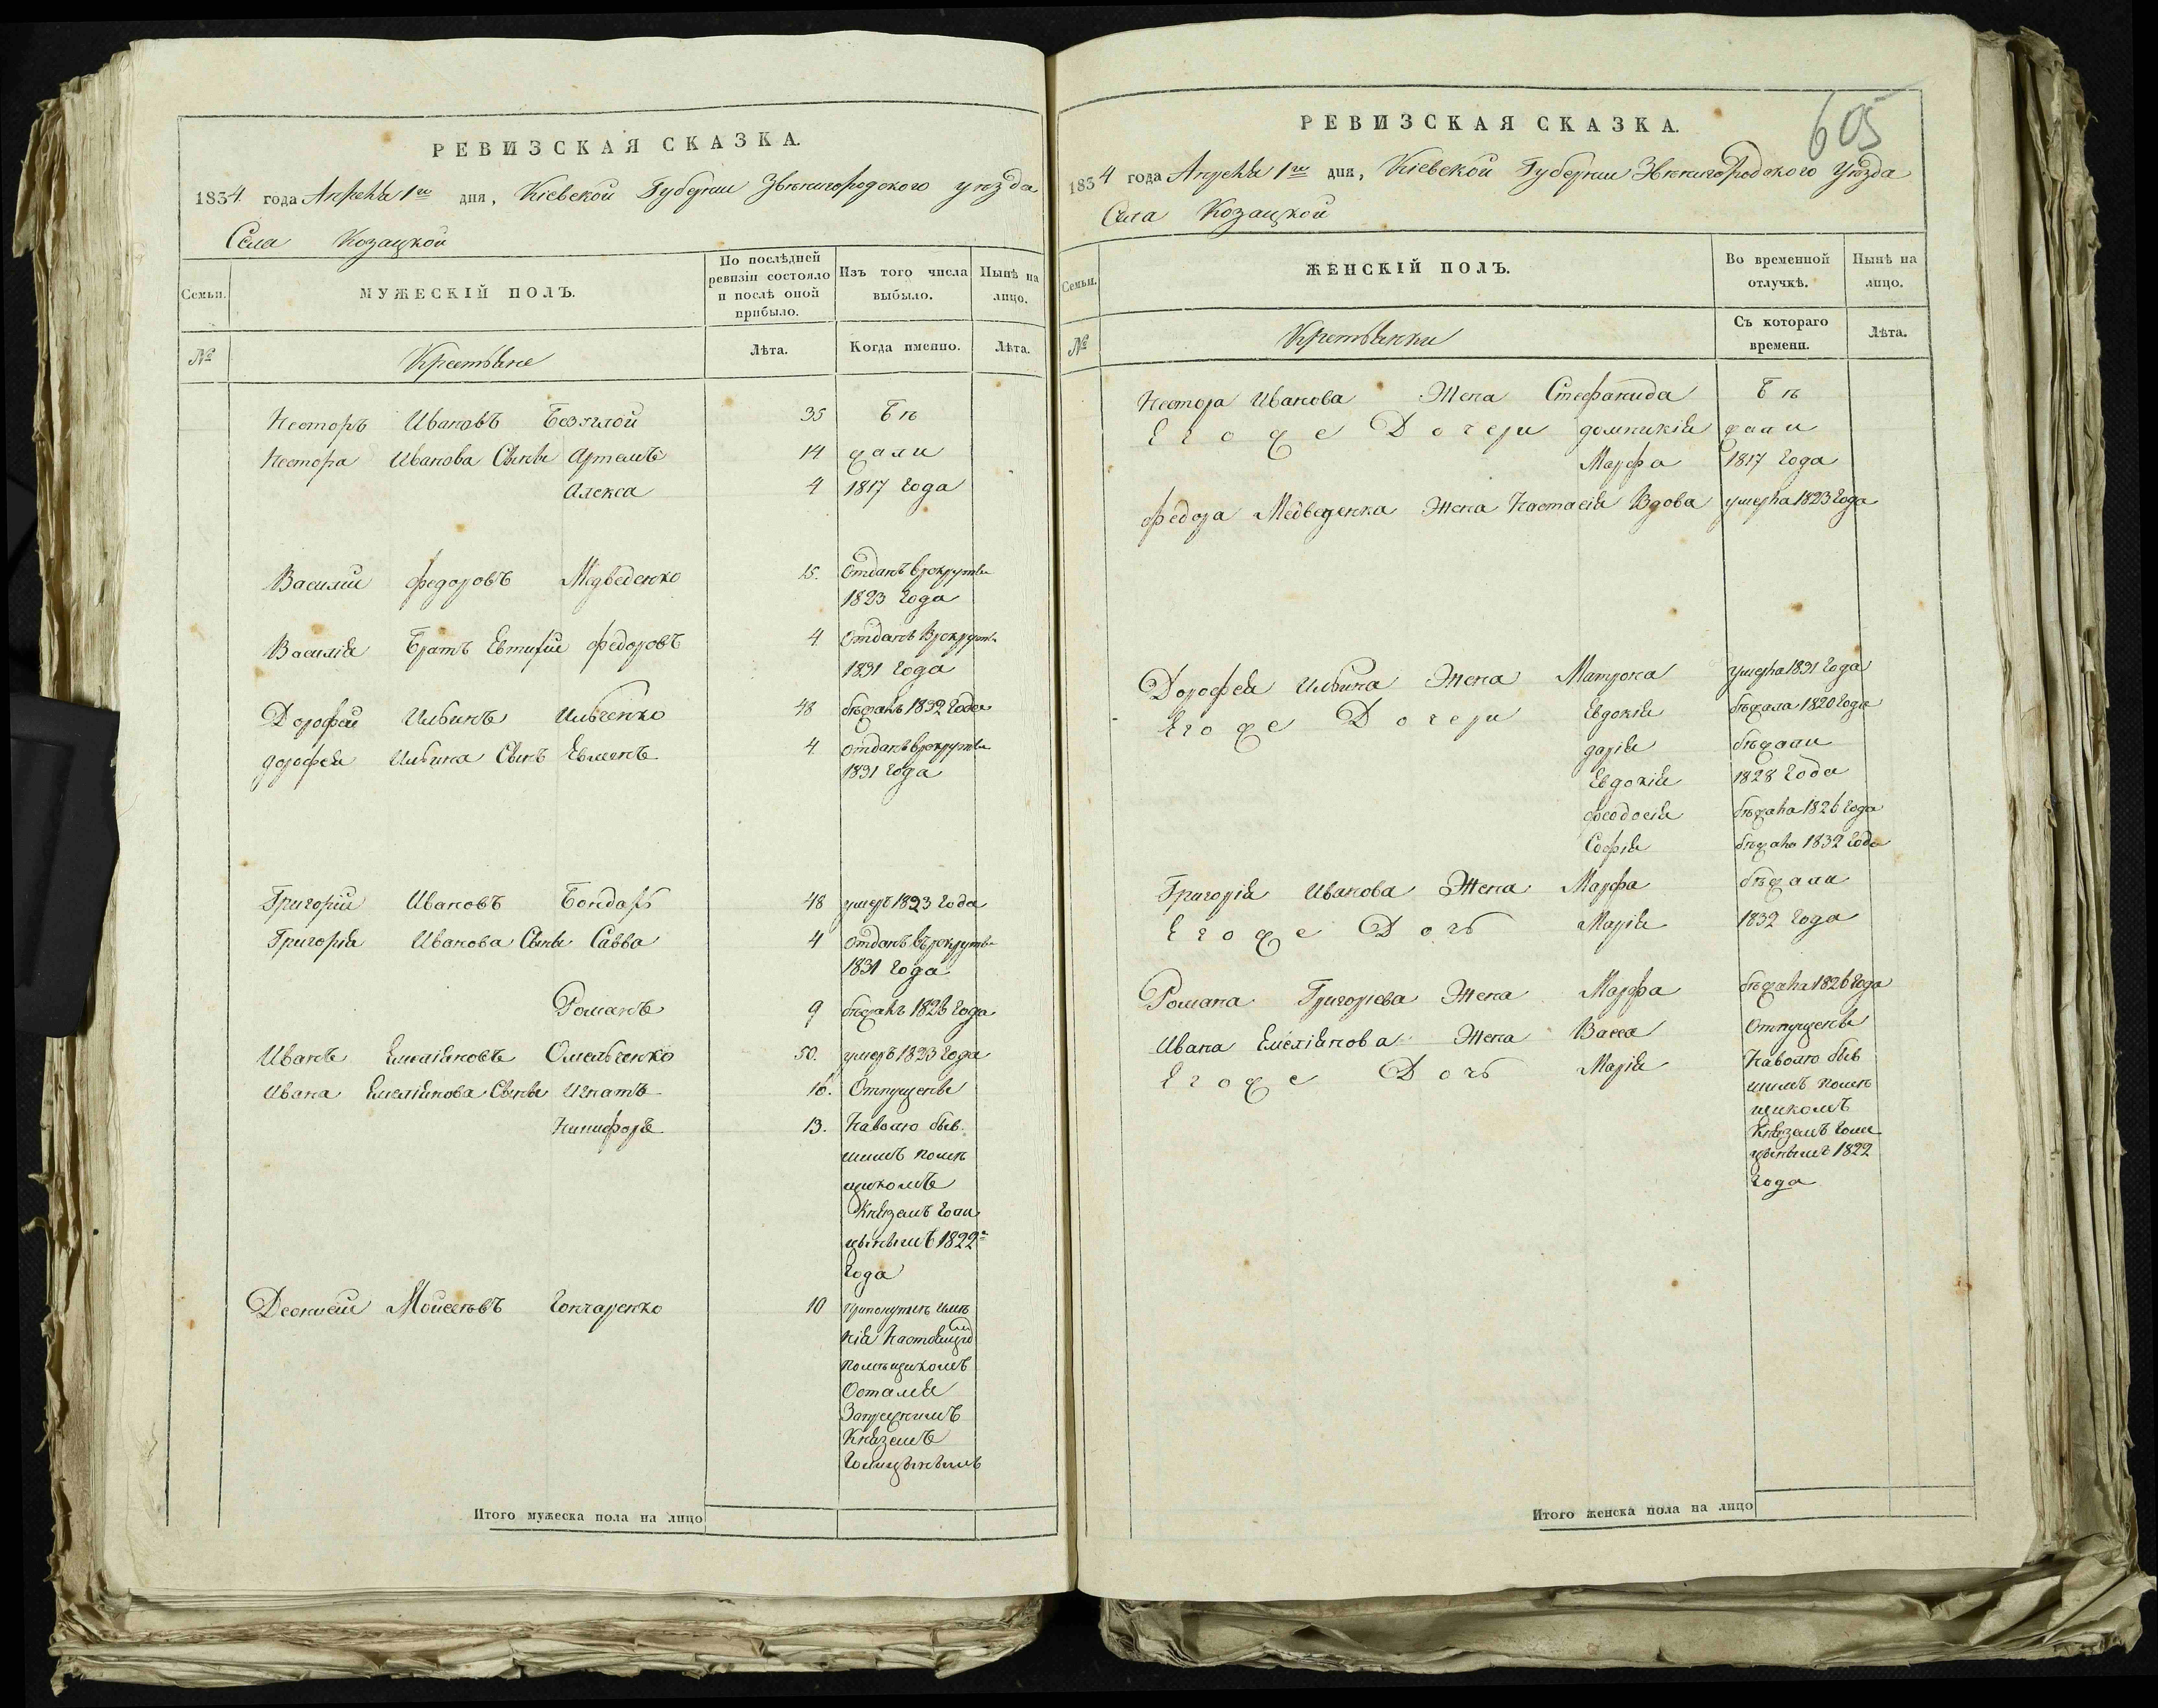 РЕВИЗСКАЯ СКАЗКА.
1834 года Апреля 1го дня, Кіевской Губернии Звенигородского уезда
Села Козацкой
Семьи.
МУЖЕСКІЙ ПОЛЪ.
По послѣдней ревизіи состояло и послѣ оной прибыло.
Изъ того числа выбыло.
Нынѣ на лицо.
№
Крестьяне
Лѣта.
Когда именно.
Лѣта.
Несторъ Ивановъ 35 бѣ
Нестора Иванова Сыны Артемъ 14 жали
Алекса 4 1817 года
Василий Федоровъ Медведенко 15. Отданъ врекруты
1823 года
Василія Братъ Евтифий Федоровъ 4 Отданъ Врекрут
1831 года
Дорофей Ильинъ Ильченко 48 бѣжалъ 1832 года
Дорофея Ильина Сынъ Евменъ 4. отданъ врекруты
1831 года
Григорий Ивановъ Бондарь 48 умеръ 1823 года
Григорія Иванова Сыны Савва 4 отданъ врекруты
1831 года
Романъ 9 бѣжалъ 1826 года
Иванъ Емеліяновъ Омельченко 50. умеръ 1823 года
Ивана Емеліянова Сыны Игнатъ 16. Отпущены
Никифоръ 13. Наволю быв
шимъ поме
щикомъ
Княземъ Голи
цынымъ 1822го
года
Деонисий Моисеевъ Гончаренко 10 припокупке име
нія Настоящимъ
помещикомъ
Остался
Запрежнимъ
Княземъ
Голицынымъ
Итого мужеска пола на лицо
РЕВИЗСКАЯ СКАЗКА.
605
1834 года Апреля 1го дня, Кіевской Губернии Звенигородского Уезда
Села Козацкой
Семьи.
ЖЕНСКІЙ ПОЛЪ.
Во временной отлучкѣ.
Нынѣ на лицо.
№
Крестьянки
Съ котораго времени.
Лѣта.
Нестора Иванова Жена Стефанида бѣ
Егоже Дочери Домникія жали
Марфа 1817 года
Федора Медведенка Жена Настасія Вдова умерла 1823 года
Дорофея Ильина Жена Матрона умерла 1831 года
Егоже Дочери Евдокія бѣжала 1820 года
Дарія бѣжали
Евдокія 1828 года
Феодосія бѣжала 1826 года
Софія бѣжала 1832 года
Григорія Иванова Жена Марфа бѣжали
Егоже Дочь Марія 1832 года
Романа Григорьева Жена Марфа бѣжала 1826 года
Ивана Емеліянова Жена Васса Отпущены
Егоже Дочь Марія Наволю быв
шимъ поме
щикомъ
Княземъ Голи
цынымъ 1822
года
Итого женска пола на лицо